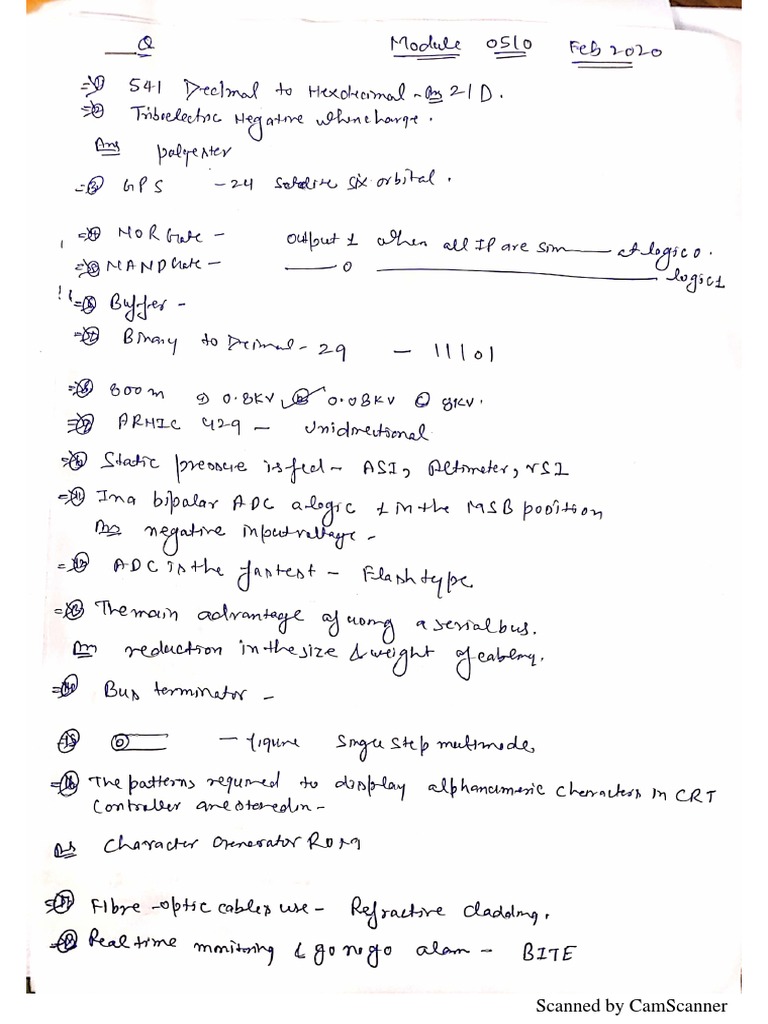 Q Module 0510 Feb 2020
⇒① 541 Decimal to Hexdecimal - Ans 21D.
⇒② Triboelectric Negative when charge.
Ans polyester
⇒③ GPS - 24 satellite six orbital.
⇒④ NOR Gate - output 1 when all IP are sim at logic 0.
⇒⑤ NAND Gate - 0 logic 1
⇒⑥ Buffer -
⇒⑦ Binary to Decimal - 29 - 11101
⇒⑧ 800m ⓐ 0.8KV ⓑ 0.08KV ⓒ 8KV.
⇒⑨ ARNIC 429 - Unidirectional
⇒⑩ Static pressure is fed - ASI, Altimeter, VSI
⇒⑪ In a bipolar ADC a logic 1 in the MSB position
Ans negative input voltage -
⇒⑫ ADC is the fastest - Flash type
⇒⑬ The main advantage of using a serial bus.
Ans reduction in the size & weight of cabling.
⇒⑭ Bus terminator -
⑮ - figure Single step multimode
⇒⑯ The patterns required to display alphanumeric characters in CRT
Controller are stored in -
Ans Character Generator ROM
⇒⑰ Fibre-optic cables use - Refractive cladding.
⇒⑱ Real time monitoring & go nogo alam - BITE
Scanned by CamScanner